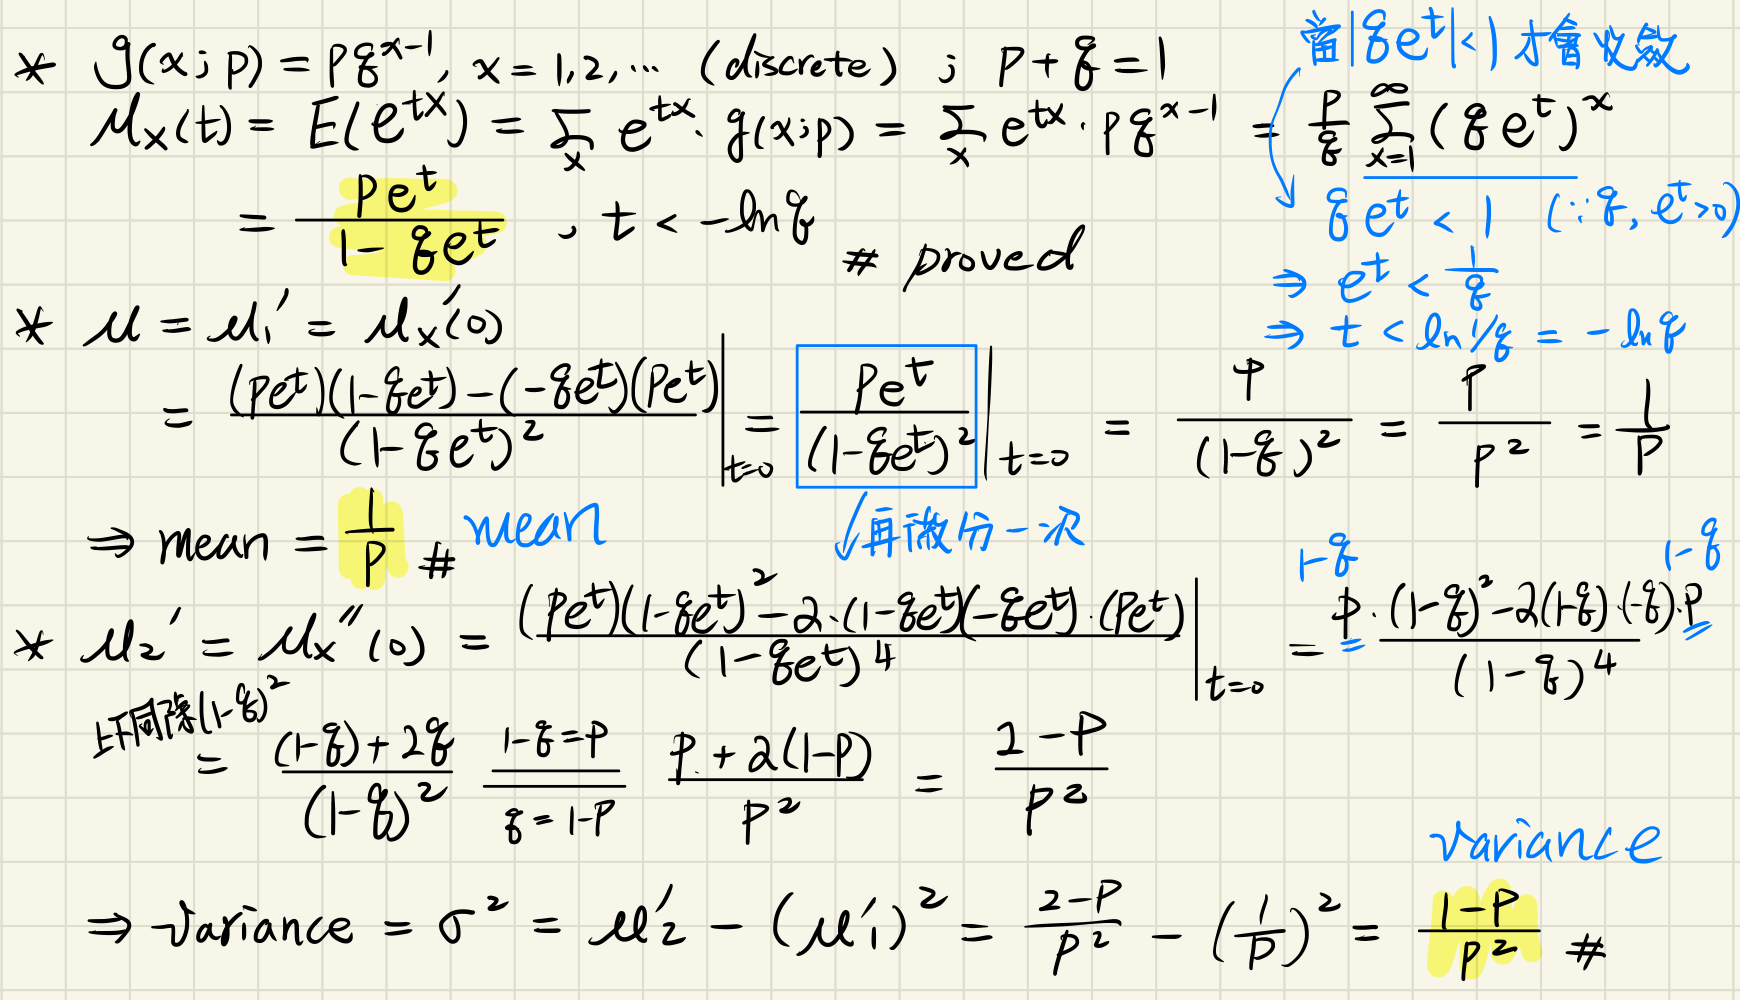 * g(x;p) = pq^{x-1}, x = 1,2,… (discrete) ; p+q=1
當|qe^t|<1 才會收斂
M_X(t) = E(e^{tX}) = Σ_x e^{tx}·g(x;p) = Σ_x e^{tx}·pq^{x-1} = p/q Σ_{x=1}^∞ (qe^t)^x
= pe^t/(1-qe^t) , t < -ln q # proved
qe^t < 1 (∵q, e^t>0)
⇒ e^t < 1/q
⇒ t < ln 1/q = -ln q
* μ = μ_1' = M_X'(0)
= ((pe^t)(1-qe^t)-(-qe^t)(pe^t))/(1-qe^t)^2 |_{t=0} = pe^t/(1-qe^t)^2 |_{t=0} = p/(1-q)^2 = p/p^2 = 1/p
⇒ mean = 1/p # mean
再微分一次
1-q 1-q
* μ_2' = M_X''(0) = ((pe^t)(1-qe^t)^2-2·(1-qe^t)(-qe^t)·(pe^t))/(1-qe^t)^4 |_{t=0} = (p·(1-q)^2-2(1-q)·(-q)·p)/(1-q)^4
上下同除(1-q)^2
= ((1-q)+2q)/(1-q)^2 1-q=p q=1-p (p+2(1-p))/p^2 = (2-p)/p^2
variance
⇒ variance = σ^2 = μ_2' - (μ_1')^2 = (2-p)/p^2 - (1/p)^2 = (1-p)/p^2 #